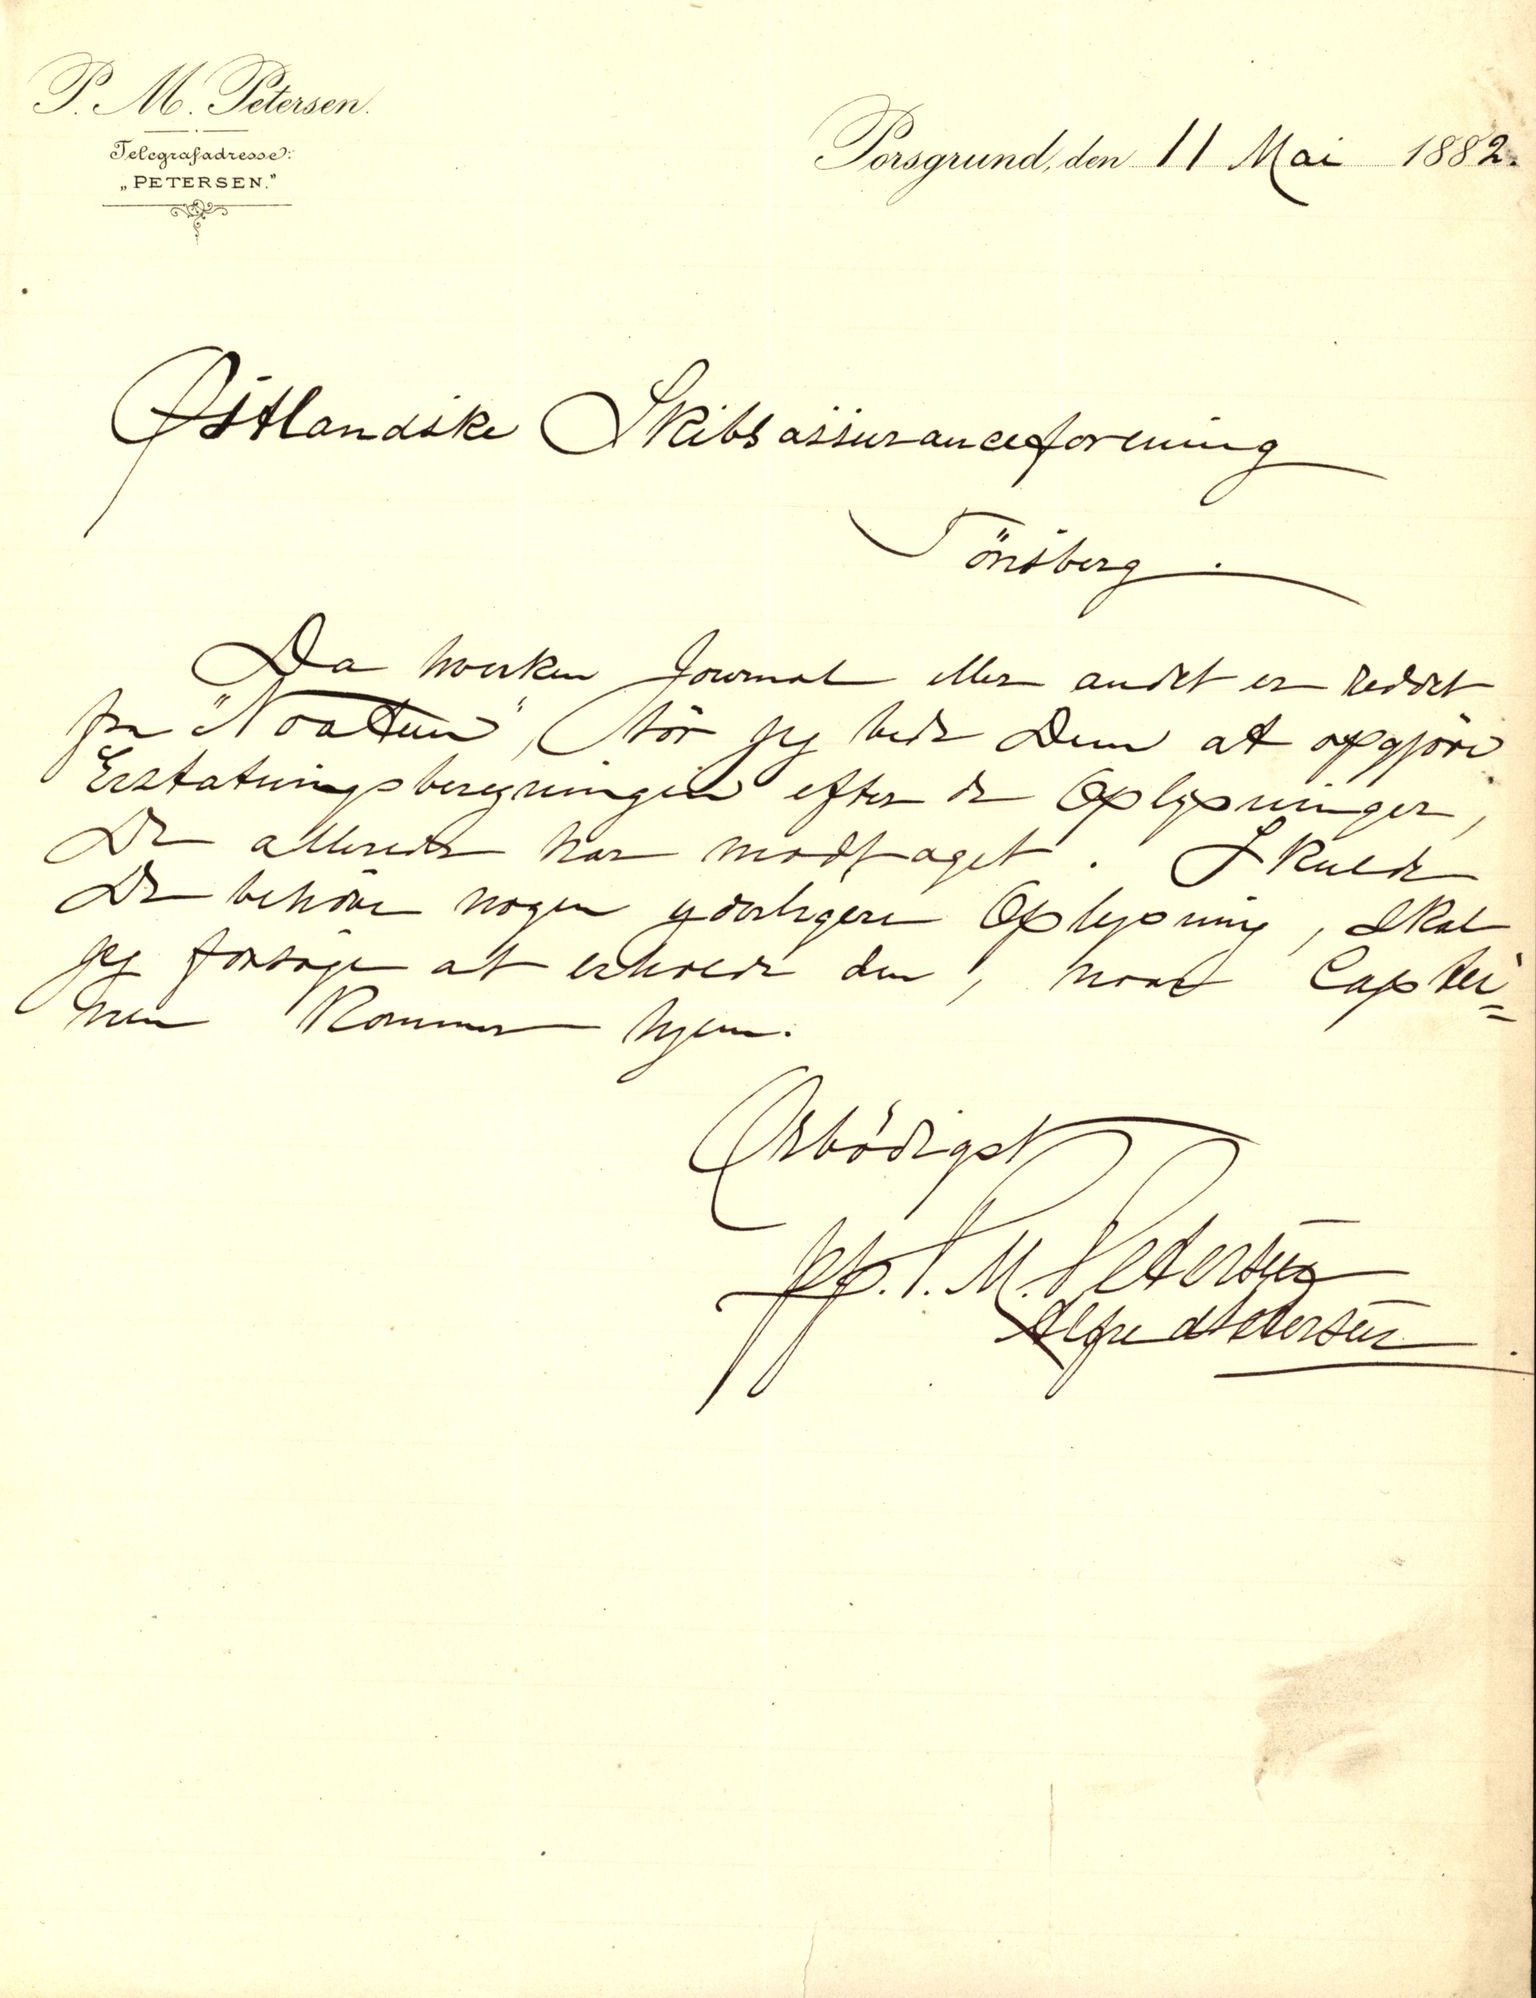 P. M. Petersen.
Telegrafadresse:
„PETERSEN."
Porsgrund, den 11 Mai 1882.
Østlandske Skibsassuranceforening
Tönsberg.
Da hverken Journal eller andet er reddet
fra "Noatun", tör jeg bede Dem at opgjöre
Erstatningsberegningen efter de Oplysninger,
De allerede har modtaget. Skulde
De behöve nogen yderligere Oplysning, skal
jeg forsöge at erholde den, naar Captei=
nen kommer hjem.
Ærbödigst
pp. P. M. Petersen
Alfred Petersen.